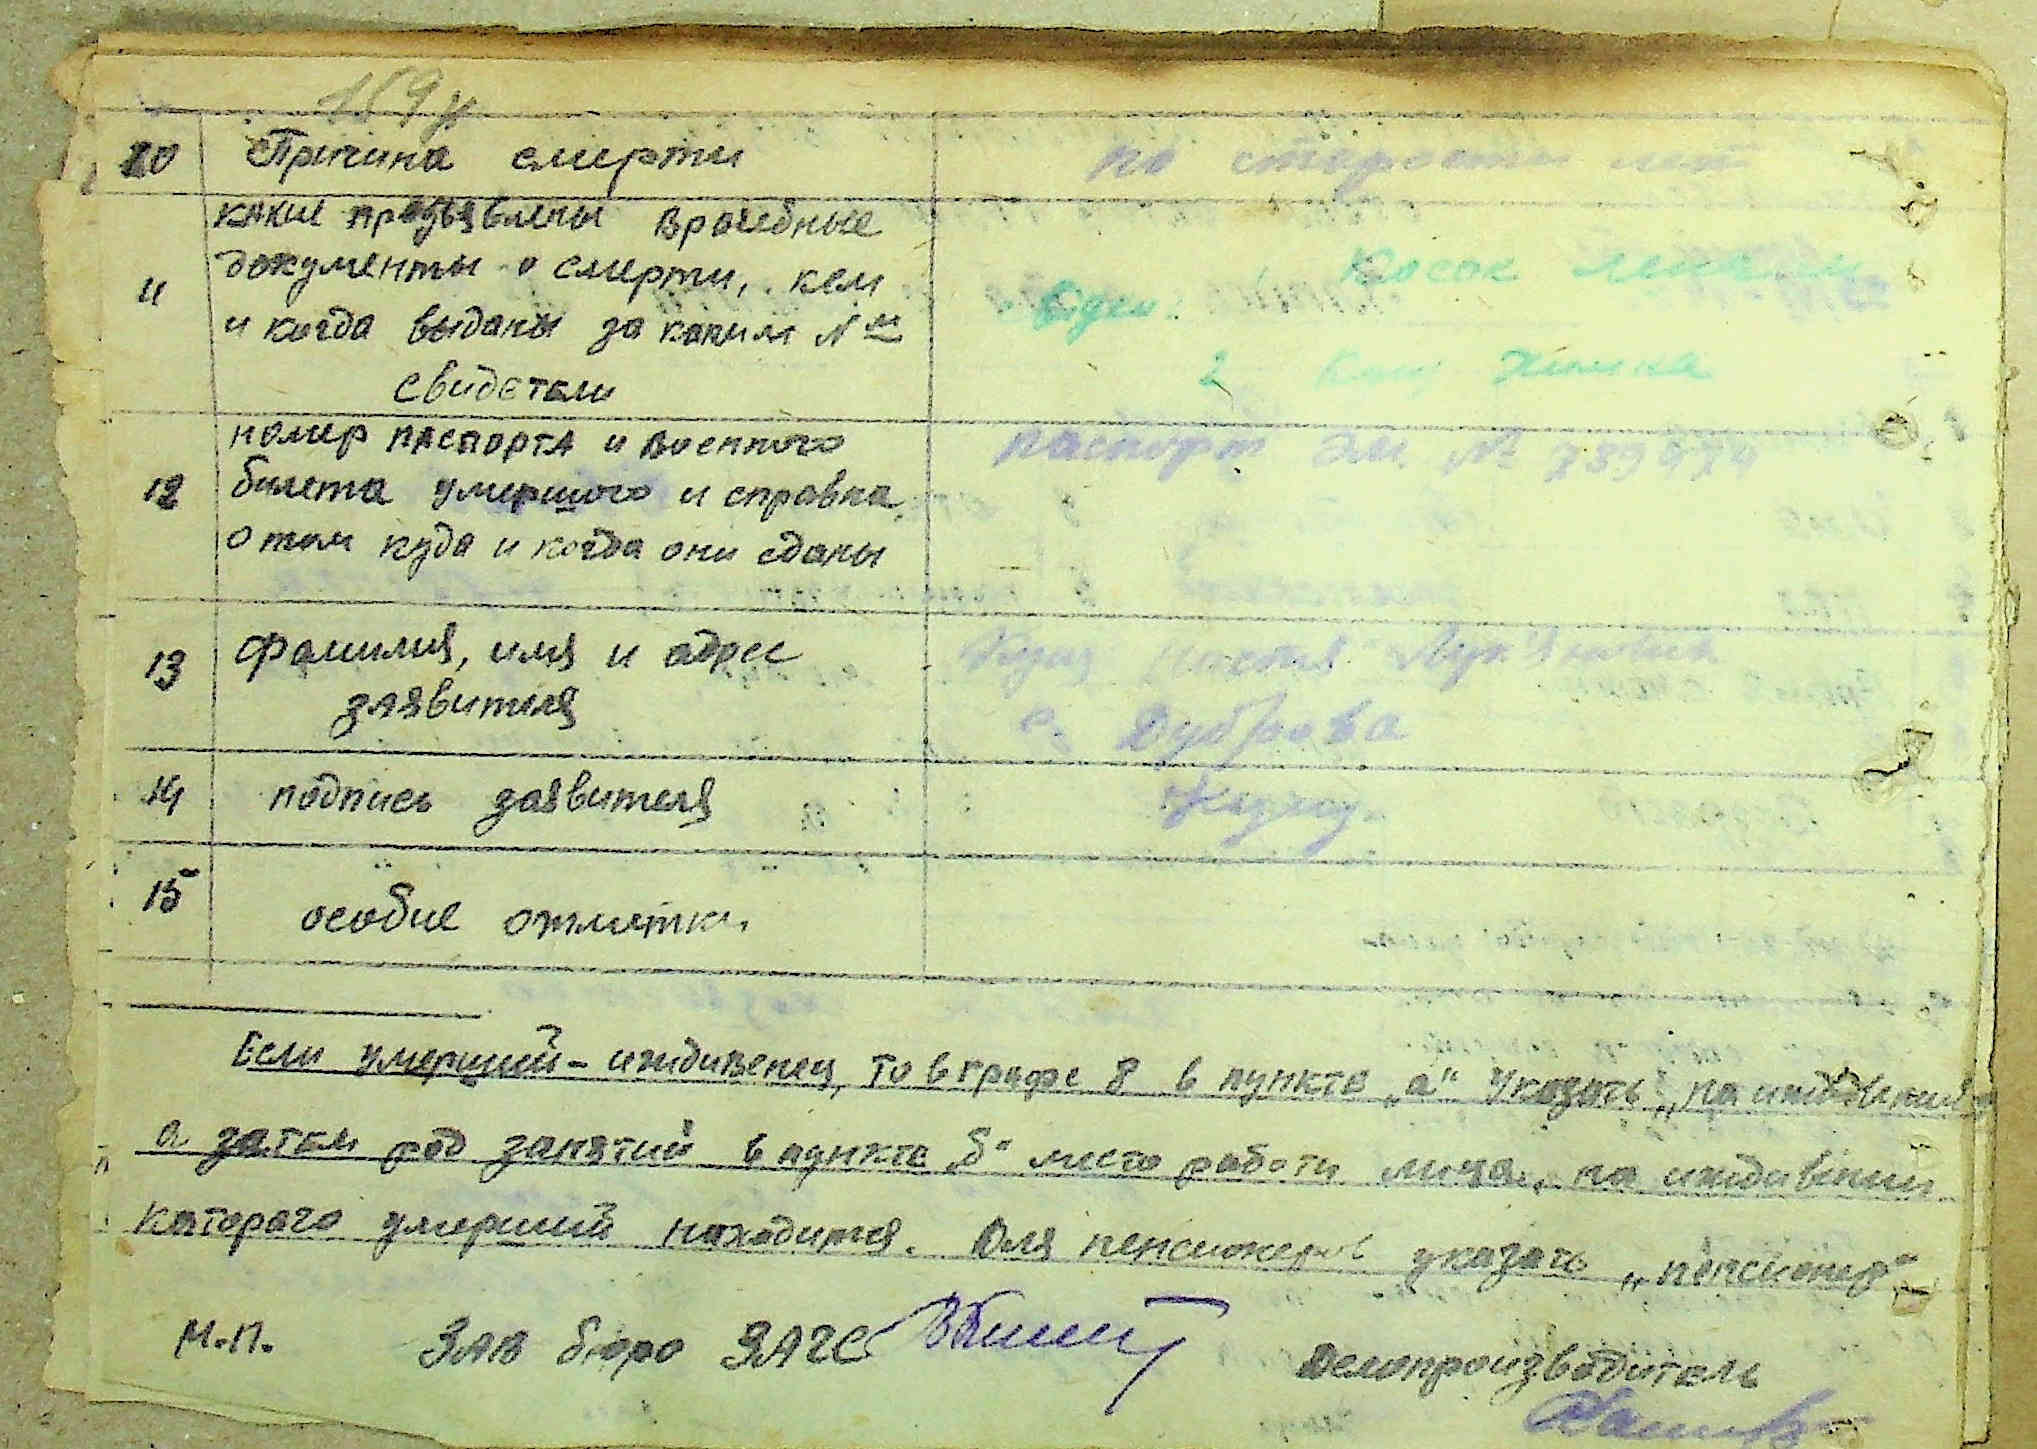 10 Причина смерти по старости лет
какие предъявлены врачебные
документы о смерти, кем
11 и когда выданы за каким №
свидетели
Косак
2 Куц
номер паспорта и военного паспорт №
12 билета умершого и справка
о том куда и когда они сданы
13 Фамилия, имя и адрес Куц Настя
заявителя с Дуброва
14 подпись заявителя
15 особие отметки.
Если умерший - иждивенец, то в графе 8 в пункте „а" указать „на иждивении"
а затем род занятий в пункте „б" место работи лица, на иждивении
которого умерший находится. Для пенсионеров указать „пенсионер"
М.П. Зав бюро ЗАГС Делопроизводитель